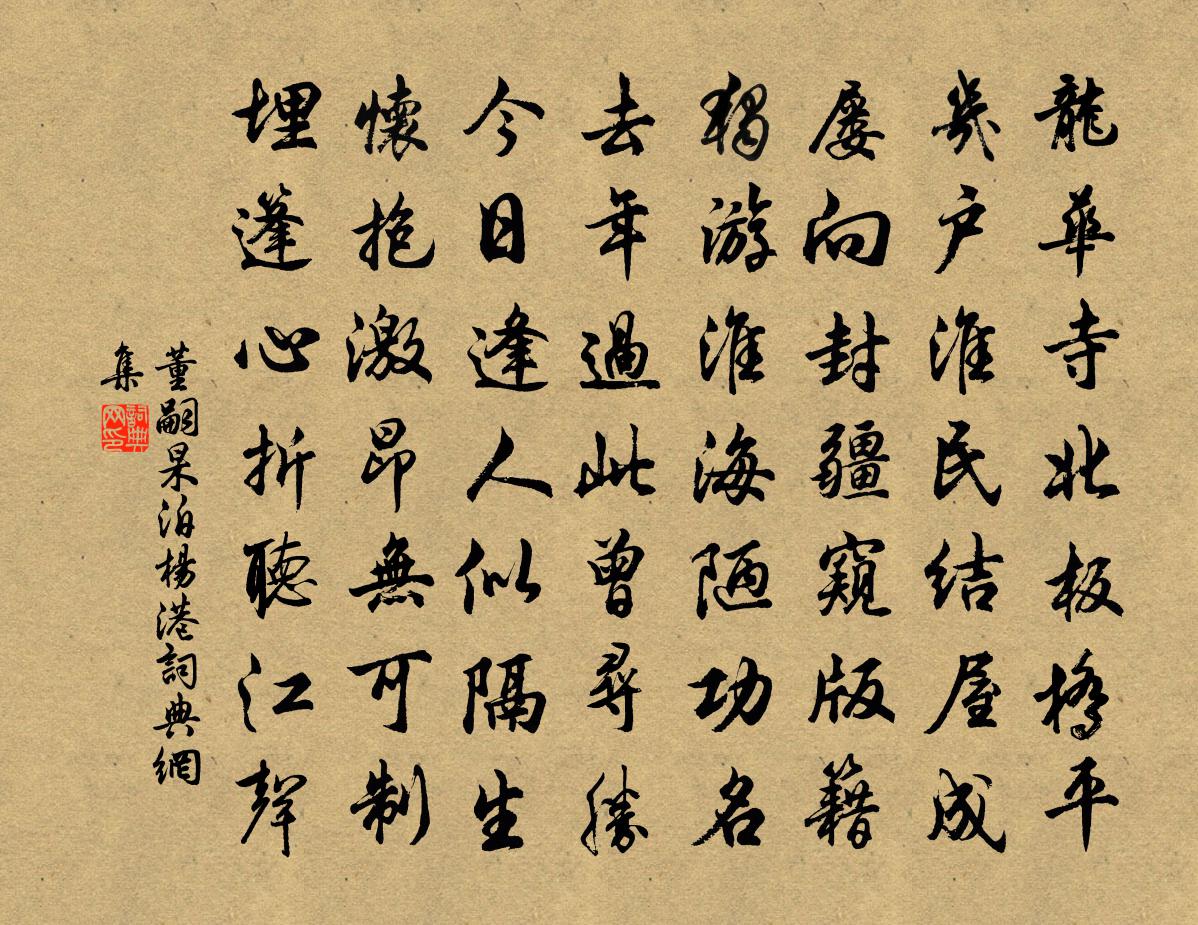 龍華寺北板橋平
幾户淮民結屋成
屡向封疆窺版籍
獨游淮海陋功名
去年過此曾尋勝
今日逢人似隔生
懷抱激昂無可制
埋蓬心折聽江聲
董嗣杲泊楊港詞典網
集
詞典网印